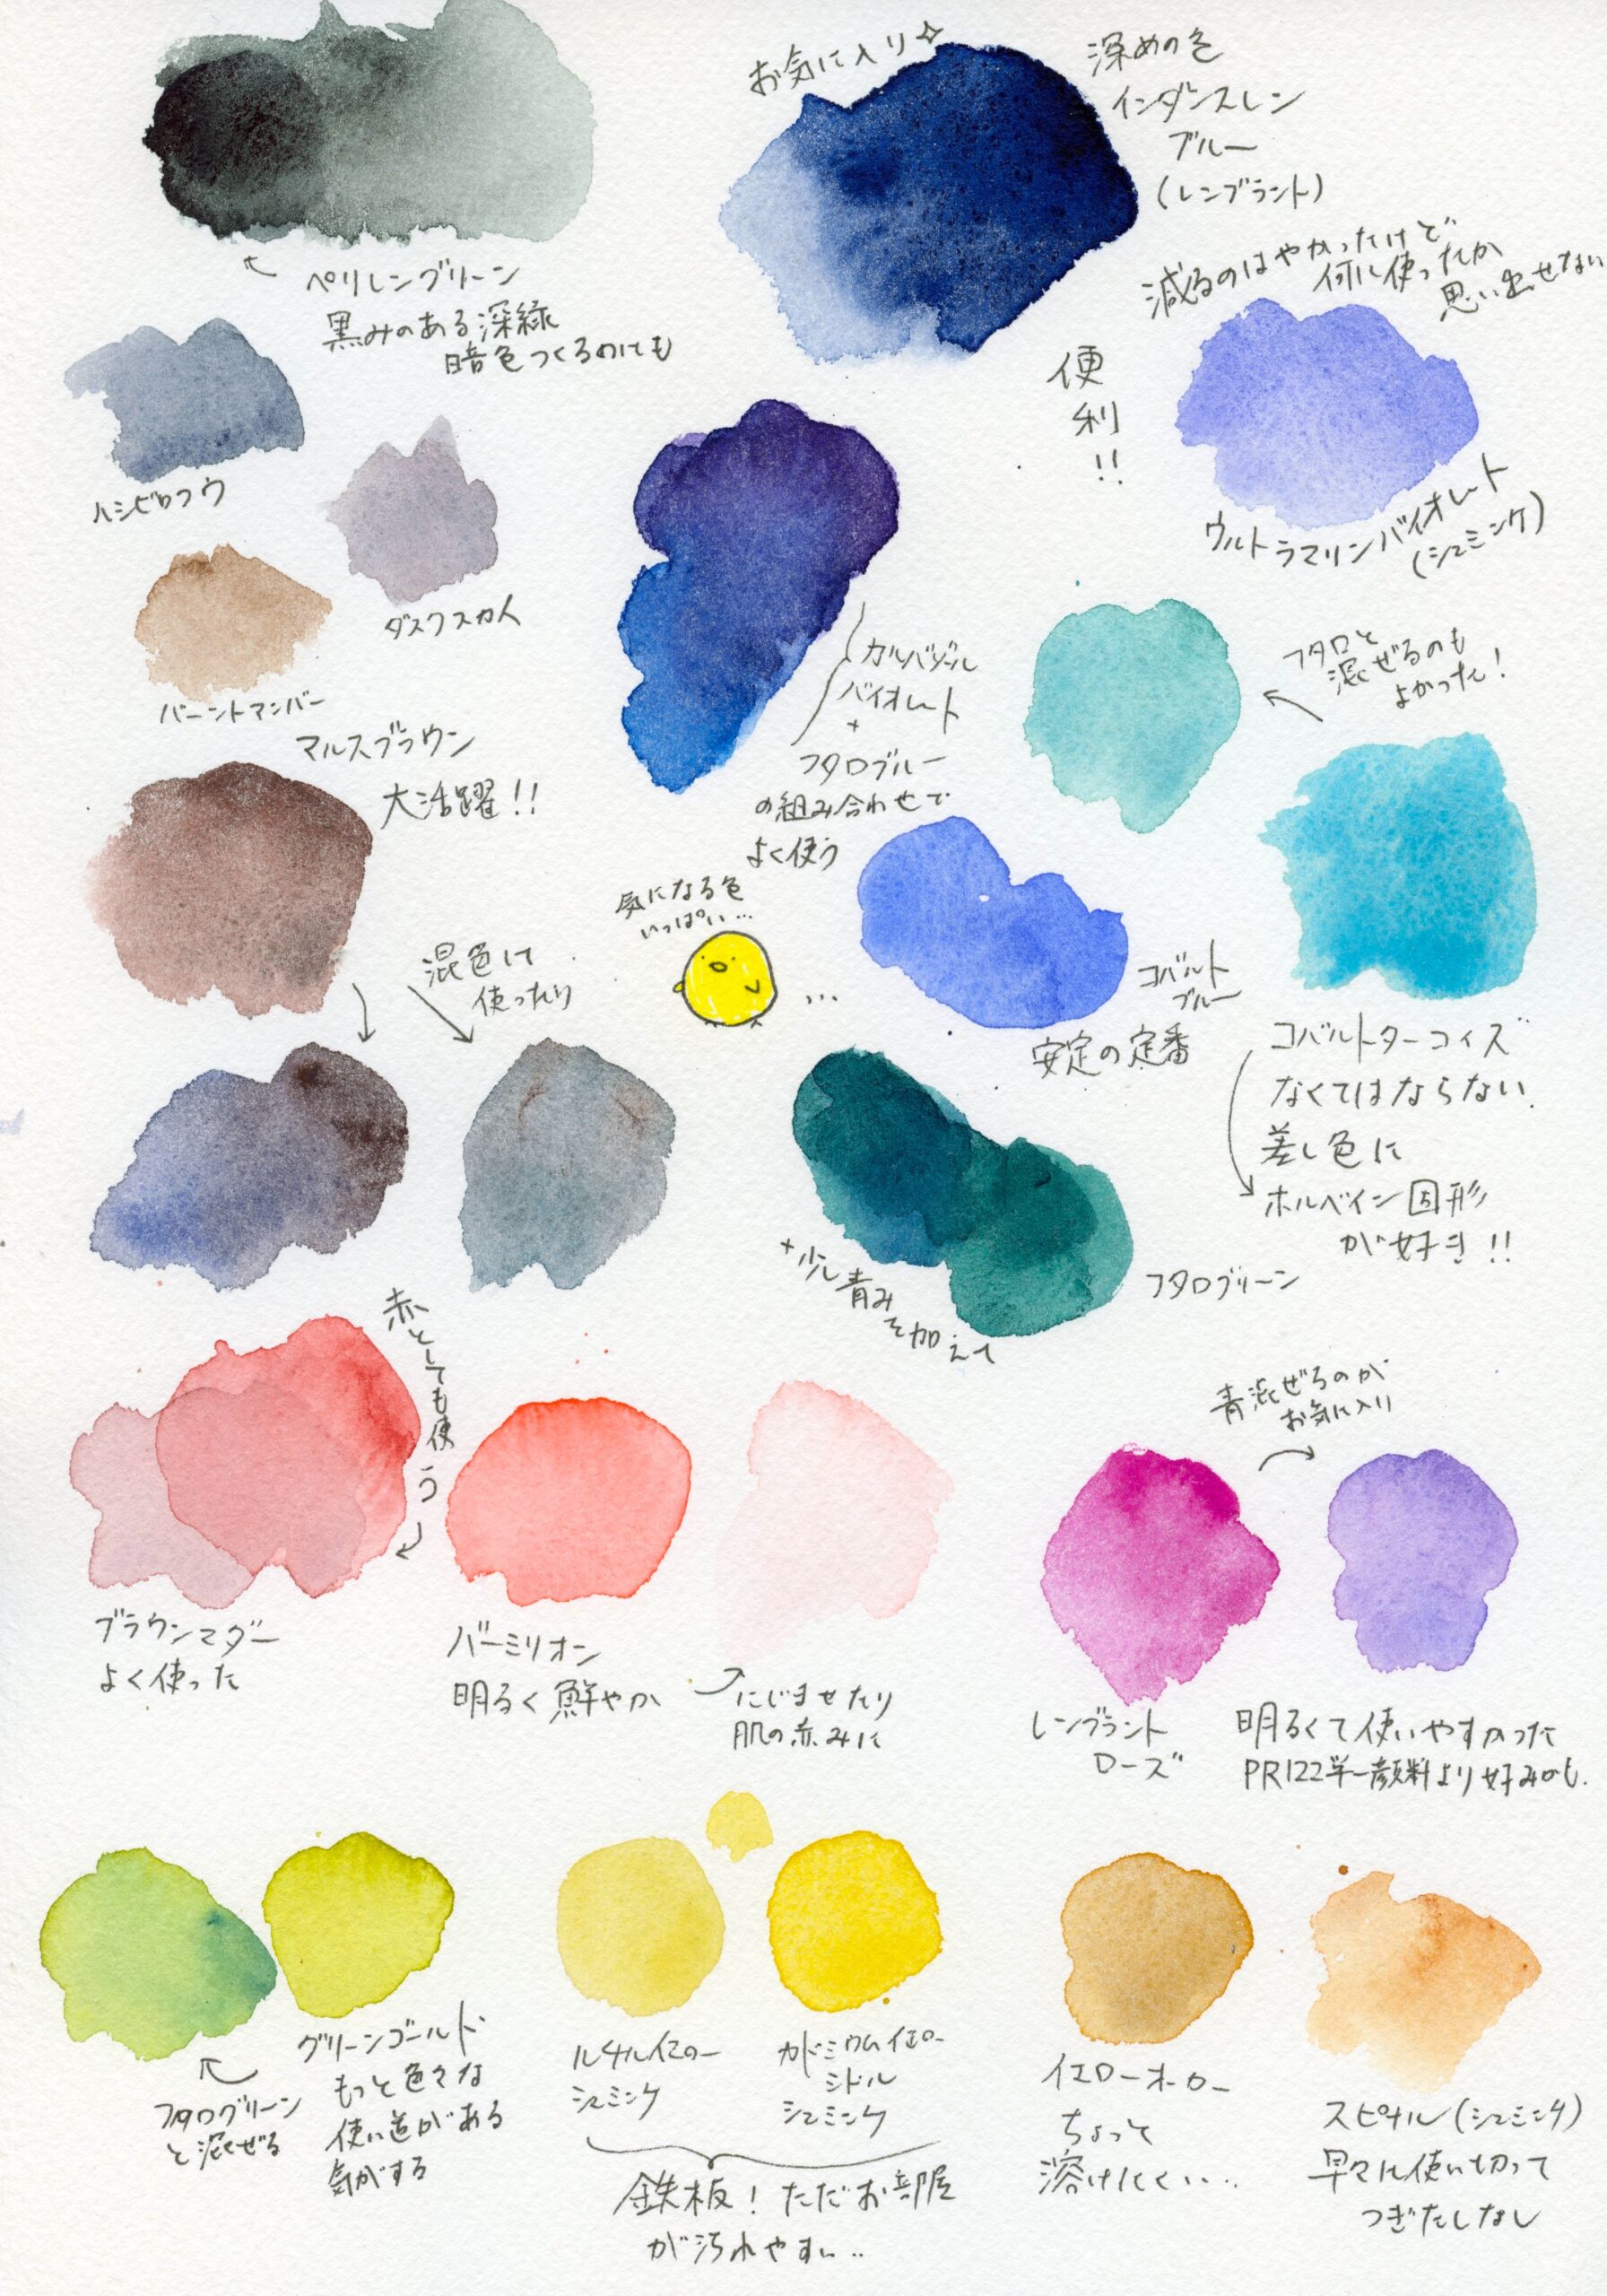 お気に入り✧
深めの色
インダンスレン
ブルー
(レンブラント)
ペリレングリーン
黒みのある深緑
暗色つくるのにも
減るのはやかったけど
何に使ったか
思い出せない
便
利
!!
ウルトラマリンバイオレット
(シュミンケ)
ハシビロコウ
ダスクスカイ
バーントアンバー
マルスブラウン
大活躍!!
カルバゾール
バイオレット
+
フタロブルー
の組み合わせで
よく使う
フタロと
混ぜるのも
よかった!
気になる色
いっぱい…
…
コバルト
ブルー
安定の定番
混色して
使ったり
コバルトターコイズ
なくてはならない
差し色に
ホルベイン固形
が好き!!
+少し青み
を加えて
フタログリーン
赤としても使う
ブラウンマダー
よく使った
バーミリオン
明るく鮮やか
にじませたり
肌の赤みに
青混ぜるのが
お気に入り
レンブラント
ローズ
明るくて使いやすかった
PR122単一顔料より好みかも.
フタログリーン
と混ぜる
グリーンゴールド
もっと色々な
使い道がある
気がする
ルチルイエロー
シュミンケ
カドミウムイエロー
ミドル
シュミンケ
鉄板!ただお部屋
が汚れやすい..
イエローオーカー
ちょっと
溶けにくい...
スピネル(シュミンケ)
早々に使い切って
つぎたしなし